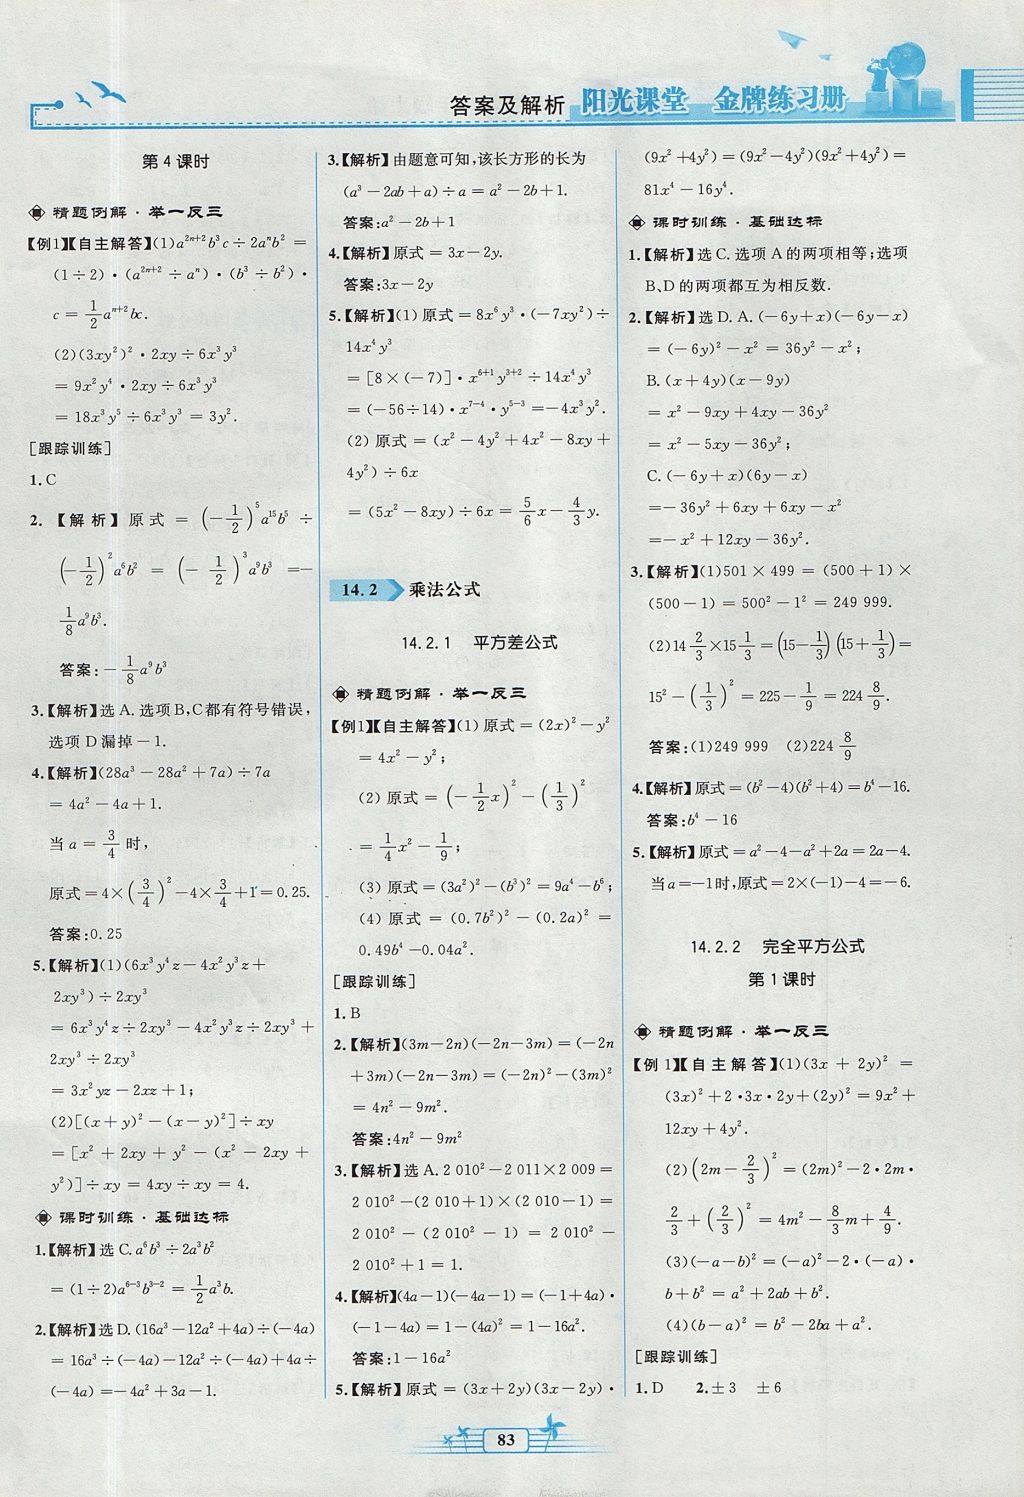 答案及解析 阳光课堂 金牌练习册
第4课时
精题例解·举一反三
【例1】【自主解答】(1)a²ⁿ⁺²b³c÷2aⁿb²=
(1÷2)·(a²ⁿ⁺²÷aⁿ)·(b³÷b²)·
c=1/2 aⁿ⁺²bc.
(2)(3xy²)²·2xy÷6x³y³
=9x²y⁴·2xy÷6x³y³
=18x³y⁵÷6x³y³=3y².
[跟踪训练]
1.C
2.【解析】原式=(-1/2)⁵a¹⁵b⁵÷
(-1/2)²a⁶b²=(-1/2)³a⁹b³=-
1/8 a⁹b³.
答案:-1/8 a⁹b³
3.【解析】选A.选项B,C都有符号错误,
选项D漏掉-1.
4.【解析】(28a³-28a²+7a)÷7a
=4a²-4a+1.
当a=3/4时,
原式=4×(3/4)²-4×3/4+1=0.25.
答案:0.25
5.【解析】(1)(6x³y⁴z-4x²y³z+
2xy³)÷2xy³
=6x³y⁴z÷2xy³-4x²y³z÷2xy³+
2xy³÷2xy³
=3x²yz-2xz+1;
(2)[(x+y)²-(x-y)²]÷xy
=[x²+2xy+y²-(x²-2xy+
y²)]÷xy=4xy÷xy=4.
课时训练·基础达标
1.【解析】选C.a⁶b³÷2a³b²
=(1÷2)a⁶⁻³b³⁻²=1/2 a³b.
2.【解析】选D.(16a³-12a²+4a)÷(-4a)
=16a³÷(-4a)-12a²÷(-4a)+4a÷
(-4a)=-4a²+3a-1.
3.【解析】由题意可知,该长方形的长为
(a³-2ab+a)÷a=a²-2b+1.
答案:a²-2b+1
4.【解析】原式=3x-2y.
答案:3x-2y
5.【解析】(1)原式=8x⁶y³·(-7xy²)÷
14x⁴y³
=[8×(-7)]·x⁶⁺¹y³⁺²÷14x⁴y³
=(-56÷14)·x⁷⁻⁴·y⁵⁻³=-4x³y².
(2)原式=(x²-4y²+4x²-8xy+
4y²)÷6x
=(5x²-8xy)÷6x=5/6 x-4/3 y.
14.2 乘法公式
14.2.1 平方差公式
精题例解·举一反三
【例1】【自主解答】(1)原式=(2x)²-y²
=4x²-y²;
(2)原式=(-1/2 x)²-(1/3)²
=1/4 x²-1/9;
(3)原式=(3a²)²-(b³)²=9a⁴-b⁶;
(4)原式=(0.7b²)²-(0.2a)²=
0.49b⁴-0.04a².
[跟踪训练]
1.B
2.【解析】(3m-2n)(-2n-3m)=(-2n
+3m)(-2n-3m)=(-2n)²-(3m)²
=4n²-9m².
答案:4n²-9m²
3.【解析】选A.2 010²-2 011×2 009=
2 010²-(2 010+1)×(2 010-1)=
2 010²-(2 010²-1)=2 010²-
2 010²+1=1.
4.【解析】(4a-1)(-4a-1)=(-1+4a)·
(-1-4a)=1-(4a)²=1-16a².
答案:1-16a²
5.【解析】原式=(3x+2y)(3x-2y)·
(9x²+4y²)=(9x²-4y²)(9x²+4y²)=
81x⁴-16y⁴.
课时训练·基础达标
1.【解析】选C.选项A的两项相等;选项
B、D的两项都互为相反数.
2.【解析】选D.A.(-6y+x)(-6y-x)
=(-6y)²-x²=36y²-x²;
B.(x+4y)(x-9y)
=x²-9xy+4xy-36y²
=x²-5xy-36y²;
C.(-6y+x)(6y-x)
=-36y²+6xy+6xy-x²
=-x²+12xy-36y².
3.【解析】(1)501×499=(500+1)×
(500-1)=500²-1²=249 999.
(2)14 2/3×15 1/3=(15-1/3)(15+1/3)=
15²-(1/3)²=225-1/9=224 8/9.
答案:(1)249 999 (2)224 8/9
4.【解析】原式=(b²-4)(b²+4)=b⁴-16.
答案:b⁴-16
5.【解析】原式=a²-4-a²+2a=2a-4.
当a=-1时,原式=2×(-1)-4=-6.
14.2.2 完全平方公式
第1课时
精题例解·举一反三
【例1】【自主解答】(1)(3x+2y)²=
(3x)²+2·3x·2y+(2y)²=9x²+
12xy+4y².
(2)(2m-2/3)²=(2m)²-2·2m·
2/3+(2/3)²=4m²-8/3 m+4/9.
(3)(-a-b)²=(-a)²-2·(-a)·
b+b²=a²+2ab+b².
(4)(b-a)²=b²-2ba+a².
[跟踪训练]
1.D 2.±3 ±6
83